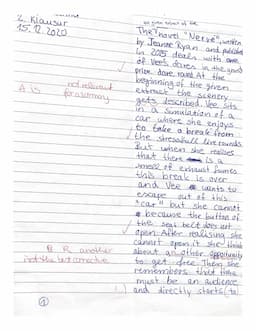 2. Klausur
15.12.2020
A is
not relevant
for a summary
R another
Find the text corrective
①
The novel "Nerve", written
by Jeanne Ryan and published
in 2015 deals with one
of Vee's dares in the grand
prize dare round. At the
beginning of the given
extract the scenery
gets described. Vee sits
in a simulation of a
car where she enjoys
to take a break from
the stressfull live rounds.
But when she realises
that there is a
smell of exhaust fumes
this break is over
and Vee wants to
escape out of this
"car" but she cannot
because the button of
the seat belt does not
open. After realising she
cannot open it she thinks
about another opportunity
to get free. Then she
remembers that there
must be an audience
and directly starts (to)